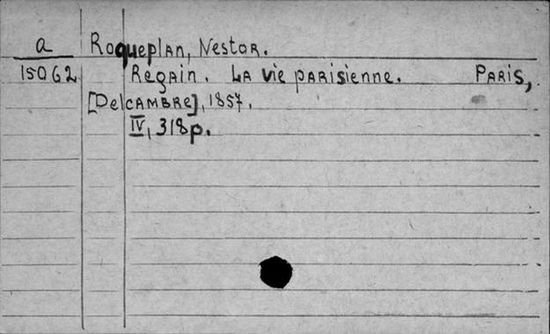 a Roqueplan, Nestor.
15062 Regain. La vie parisienne. Paris,
[Delcambre], 1857.
IV, 318p.